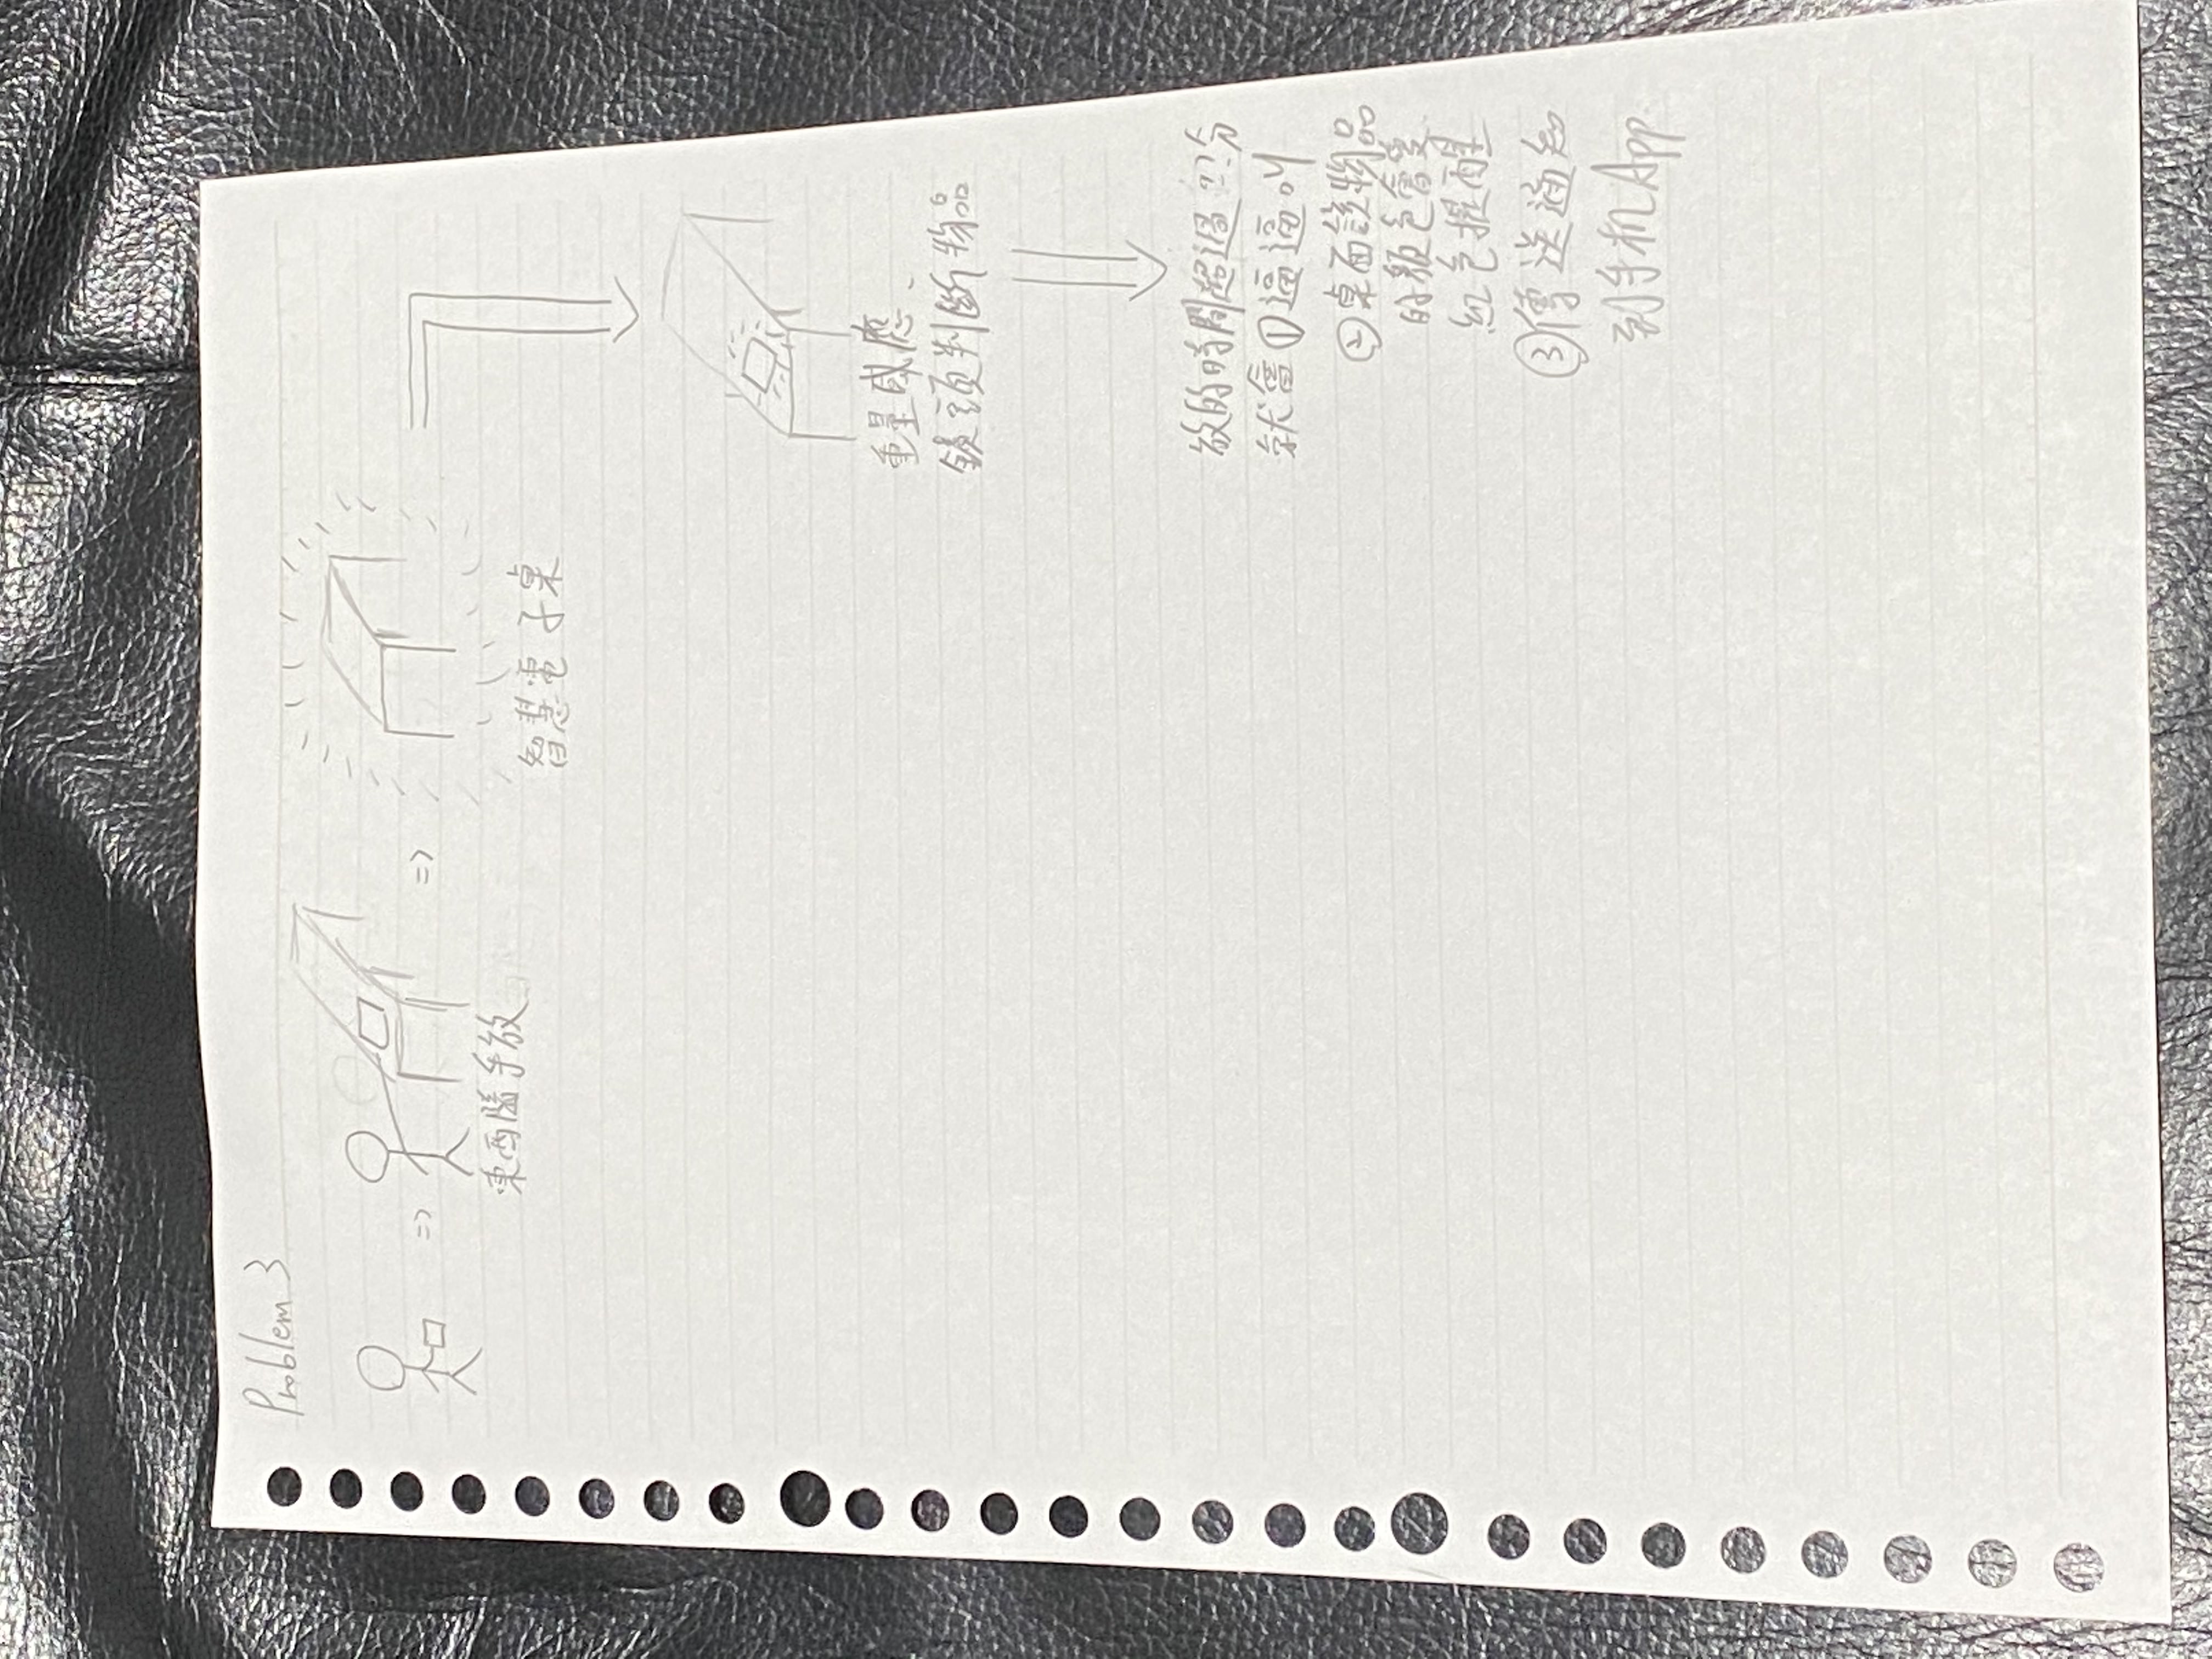 Problem 3
=> =>
東西隨手放
智慧電子桌
重量感應、
鏡頭判斷物品
放的時間超過??分
就會①逼逼叫
②桌面該物品
的顏色會變
紅色提醒
③傳送通知
到手机App